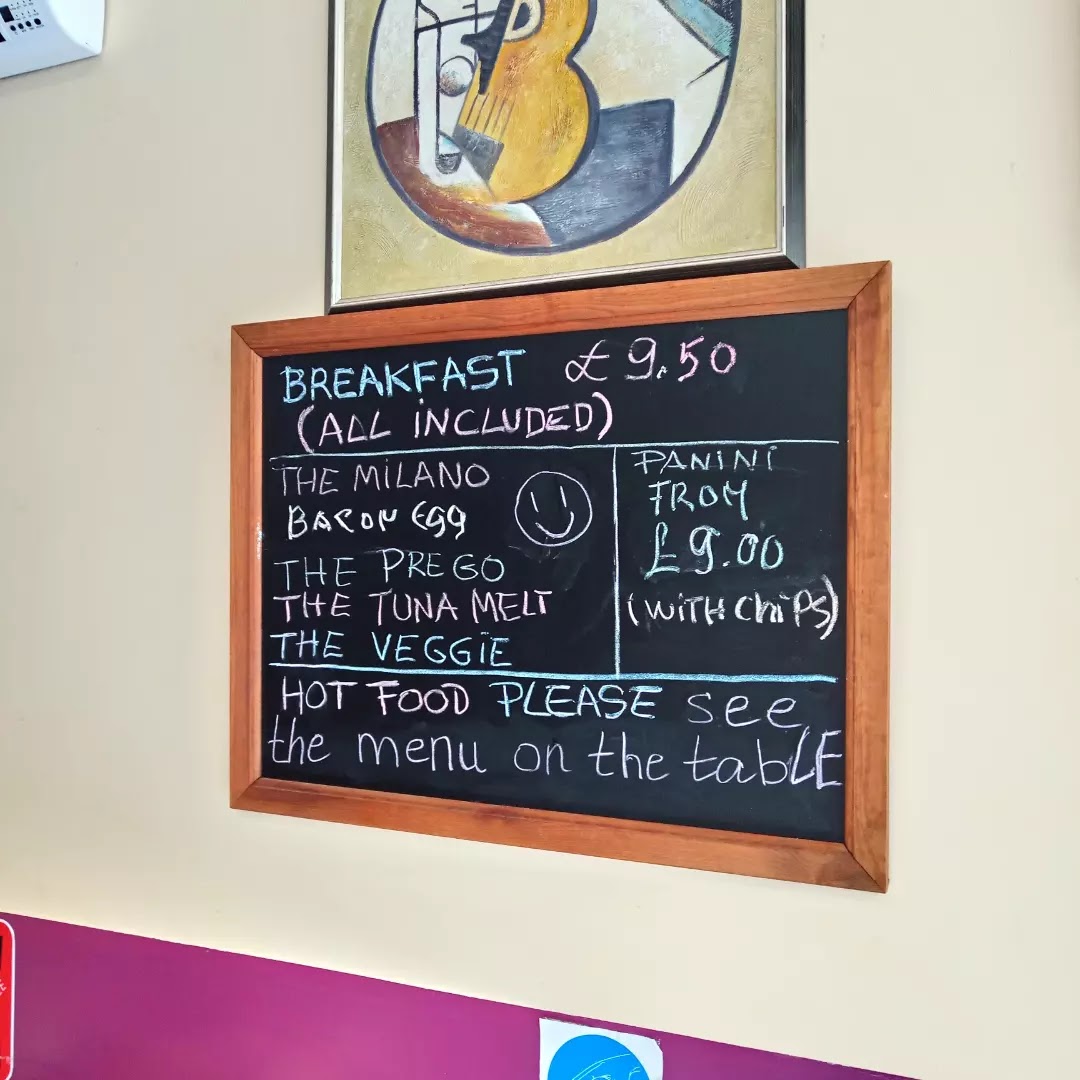 BREAKFAST £9.50
(ALL INCLUDED)
THE MILANO
BACON EGG
THE PREGO
THE TUNA MELT
THE VEGGIE
PANINI
FROM
£9.00
(WITH ChiPS)
HOT FOOD PLEASE see
the menu on the tabLE